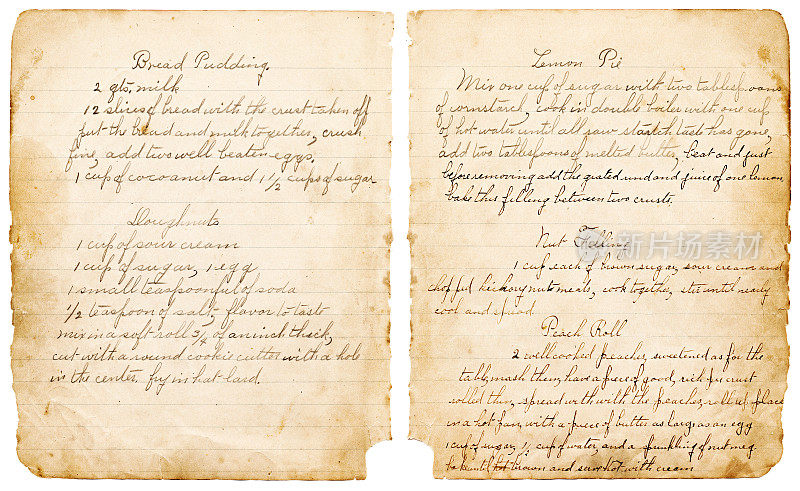 Bread Pudding.
2 qts. milk
12 slices of bread with the crust taken off
put the bread and milk together, crush
fine, add two well beaten eggs,
1 cup of cocoanut and 1 1/2 cups of sugar
Doughnuts
1 cup of sour cream
1 cup of sugar, 1 egg
1 small teaspoonful of soda
1/2 teaspoon of salt, flavor to taste
mix in a soft roll 3/4 of an inch thick,
cut with a round cookie cutter with a hole
in the center. fry in hot lard.
Lemon Pie
Mix one cup of sugar with two tablespoons
of cornstarch, cook in double boiler with one cup
of hot water until all raw starch taste has gone,
add two tablespoons of melted butter, beat and just
before removing add the grated rind and juice of one lemon
bake this filling between two crusts.
Nut Filling
1 cup each of brown sugar, sour cream and
chopped hickory nut meats, cook together, stir until nearly
cool and spread.
Peach Roll
2 well cooked peaches, sweetened as for the
table, mash them, have a piece of good, rich pie crust
rolled thin, spread with the peaches, roll up, place
in a hot pan, with a piece of butter as large as an egg
1 cup of sugar, 1/2 cup of water, and a sprinkling of nutmeg
bake until brown and serve hot with cream
iStock